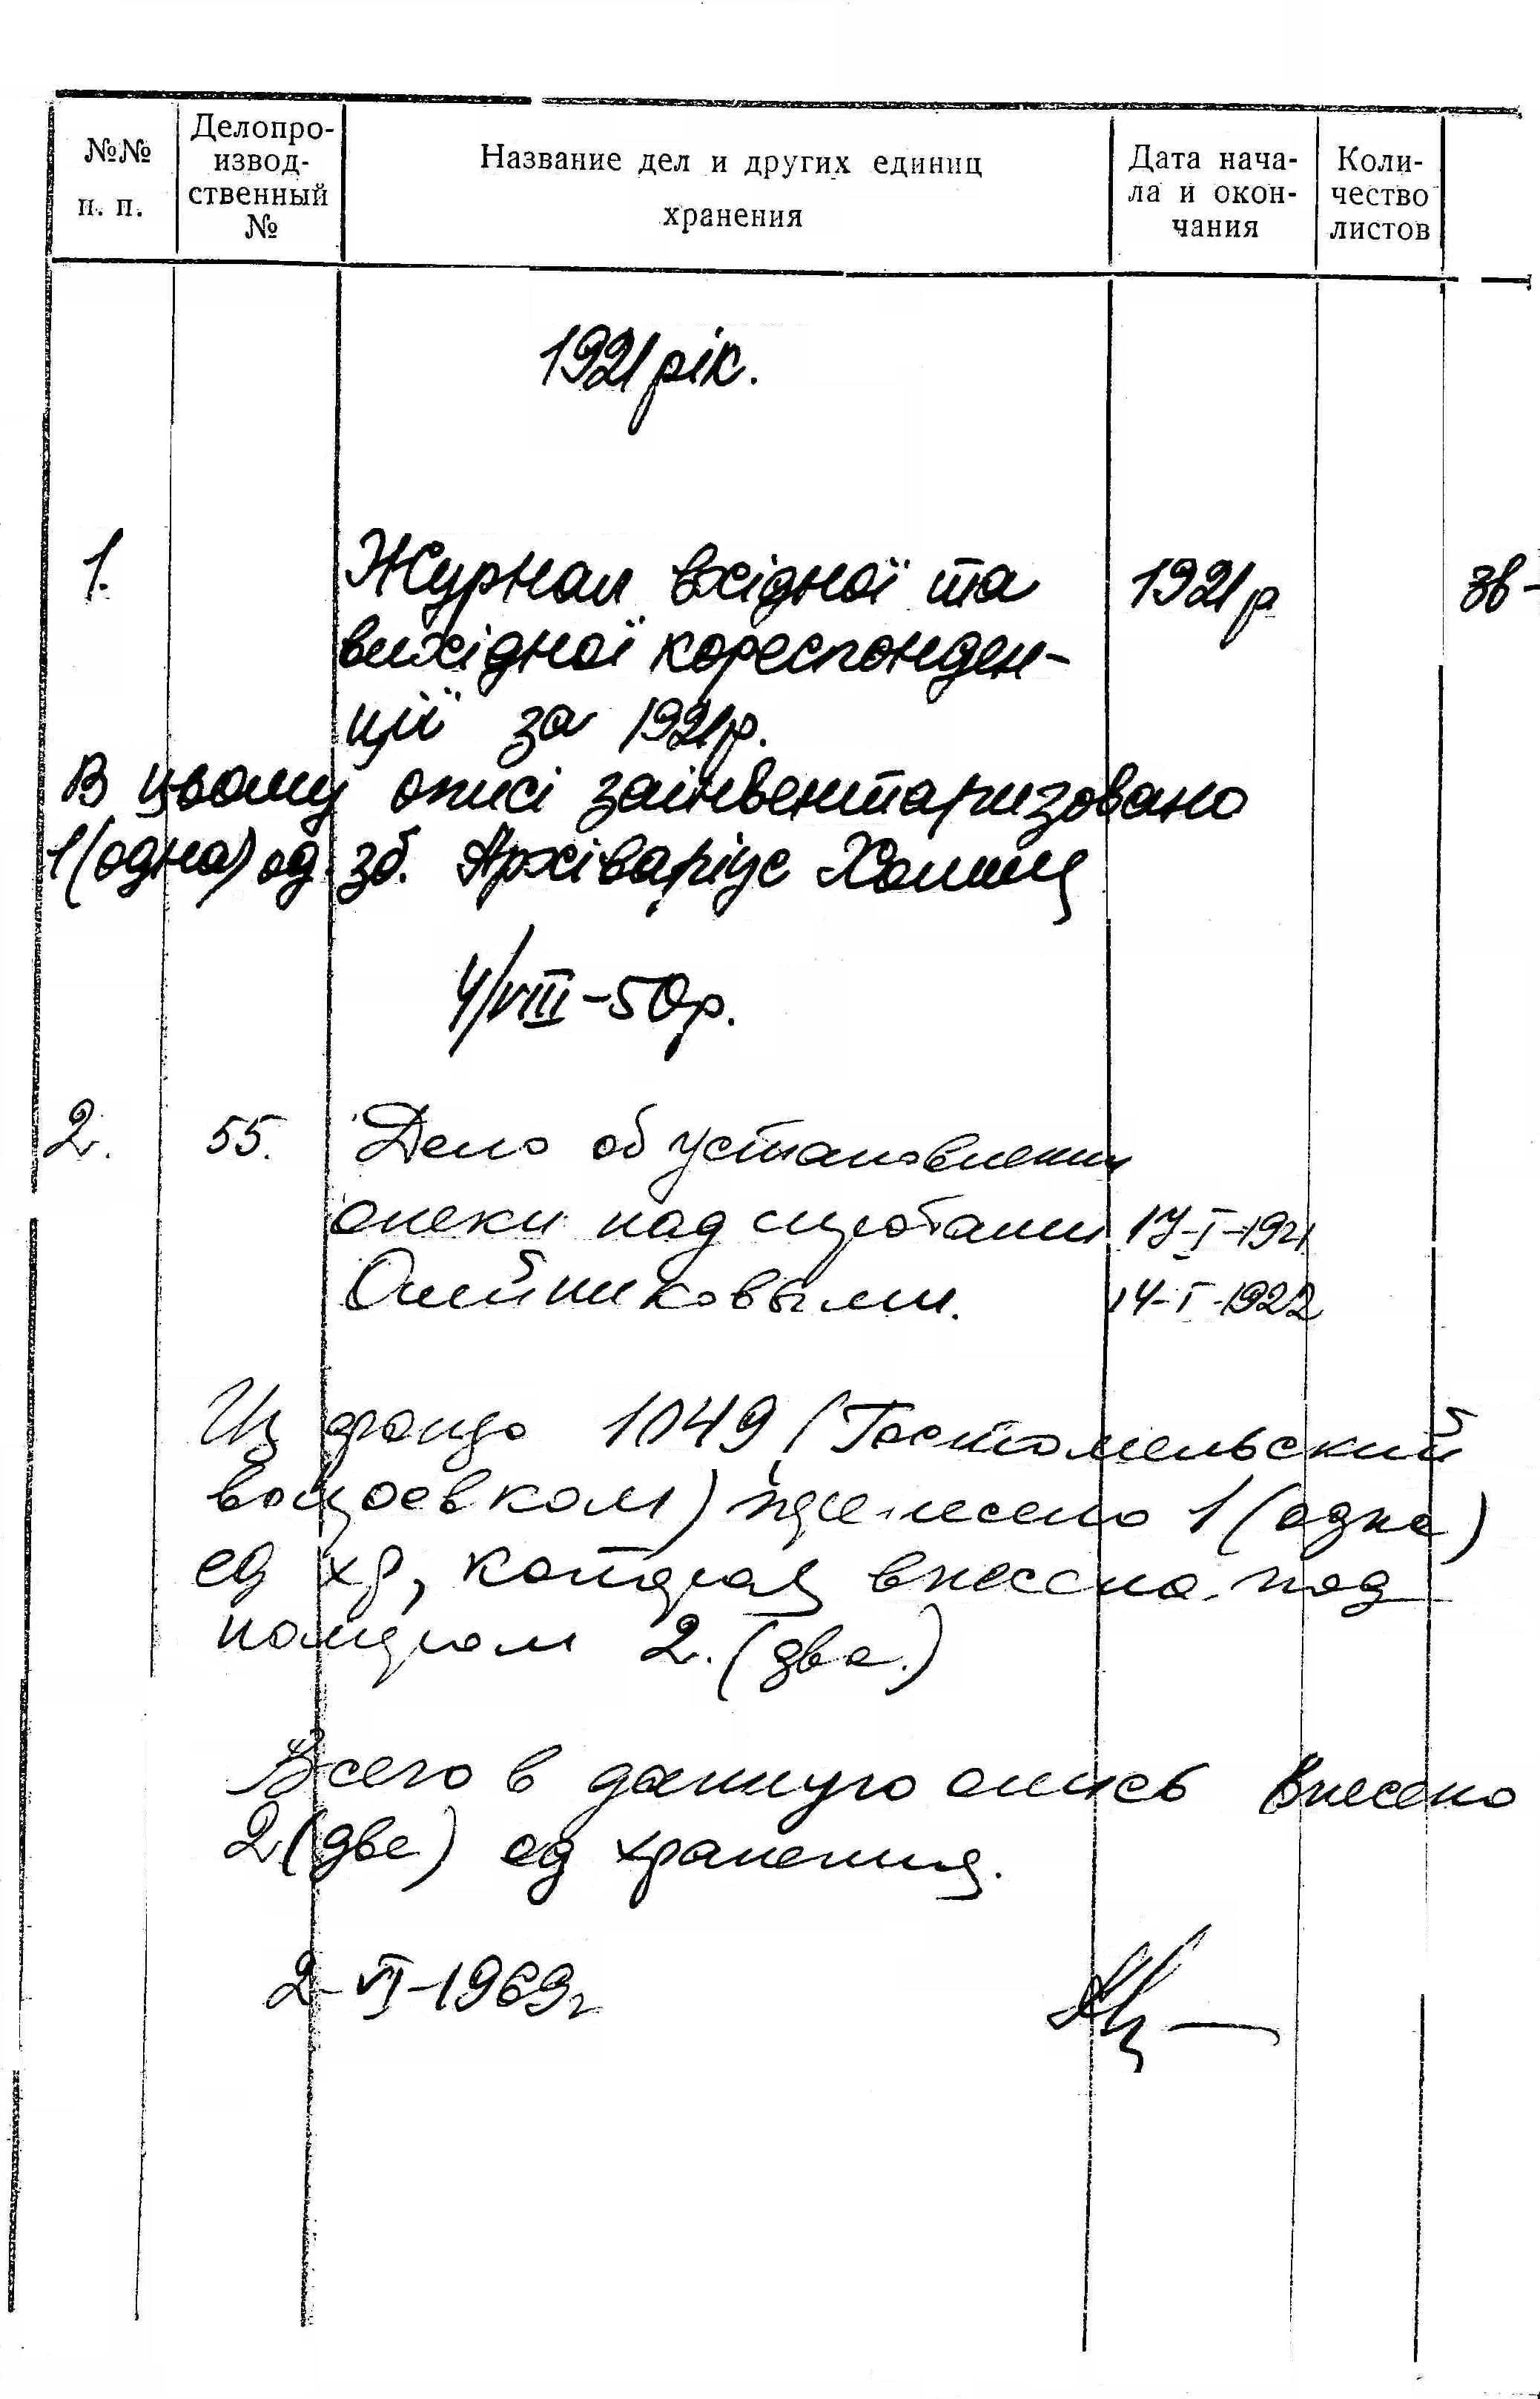 №№ п. п.
Делопро-
извод-
ственный
№
Название дел и других единиц
хранения
Дата нача-
ла и окон-
чания
Коли-
чество
листов
1921 рік.
1. Журнал вхідної та 1921 р
вихідної кореспонден-
ції за 1921 р.
В цьому описі заінвентаризовано
1 (одна) од. зб. Архіваріус
4/VIII-50 р.
2. 55. Дело об установлении
опеки над сиротами 17-I-1921
Олейниковыми. 14-I-1922
Из фонда 1049 (Гостомельский
) 1 (одна)
ед хр, которая внесена под
номером 2. (два.)
Всего в данную опись внесено
2 (две) ед хранения.
2-VI-1969 г